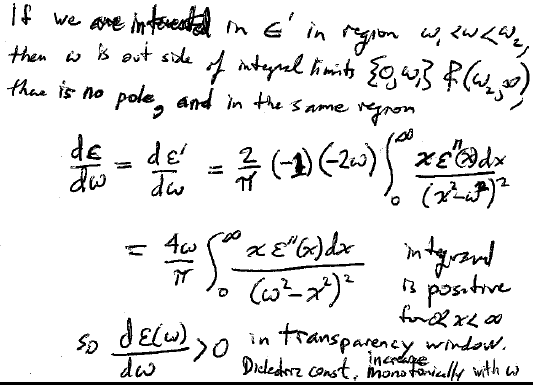 If we are interested in ε' in region ω₁<ω<ω₂,
then ω is out side of integral limits {0,ω₁} & (ω₂,∞)
there is no pole, and in the same region
dε/dω = dε'/dω = 2/π (-1)(-2ω) ∫₀^∞ xε"(x)dx/(x²-ω²)²
= 4ω/π ∫₀^∞ xε"(x)dx/(ω²-x²)² integrand
is positive
for 0<x<∞
so dε(ω)/dω >0 in transparency window.
Dielectric const. increase monotonically with ω